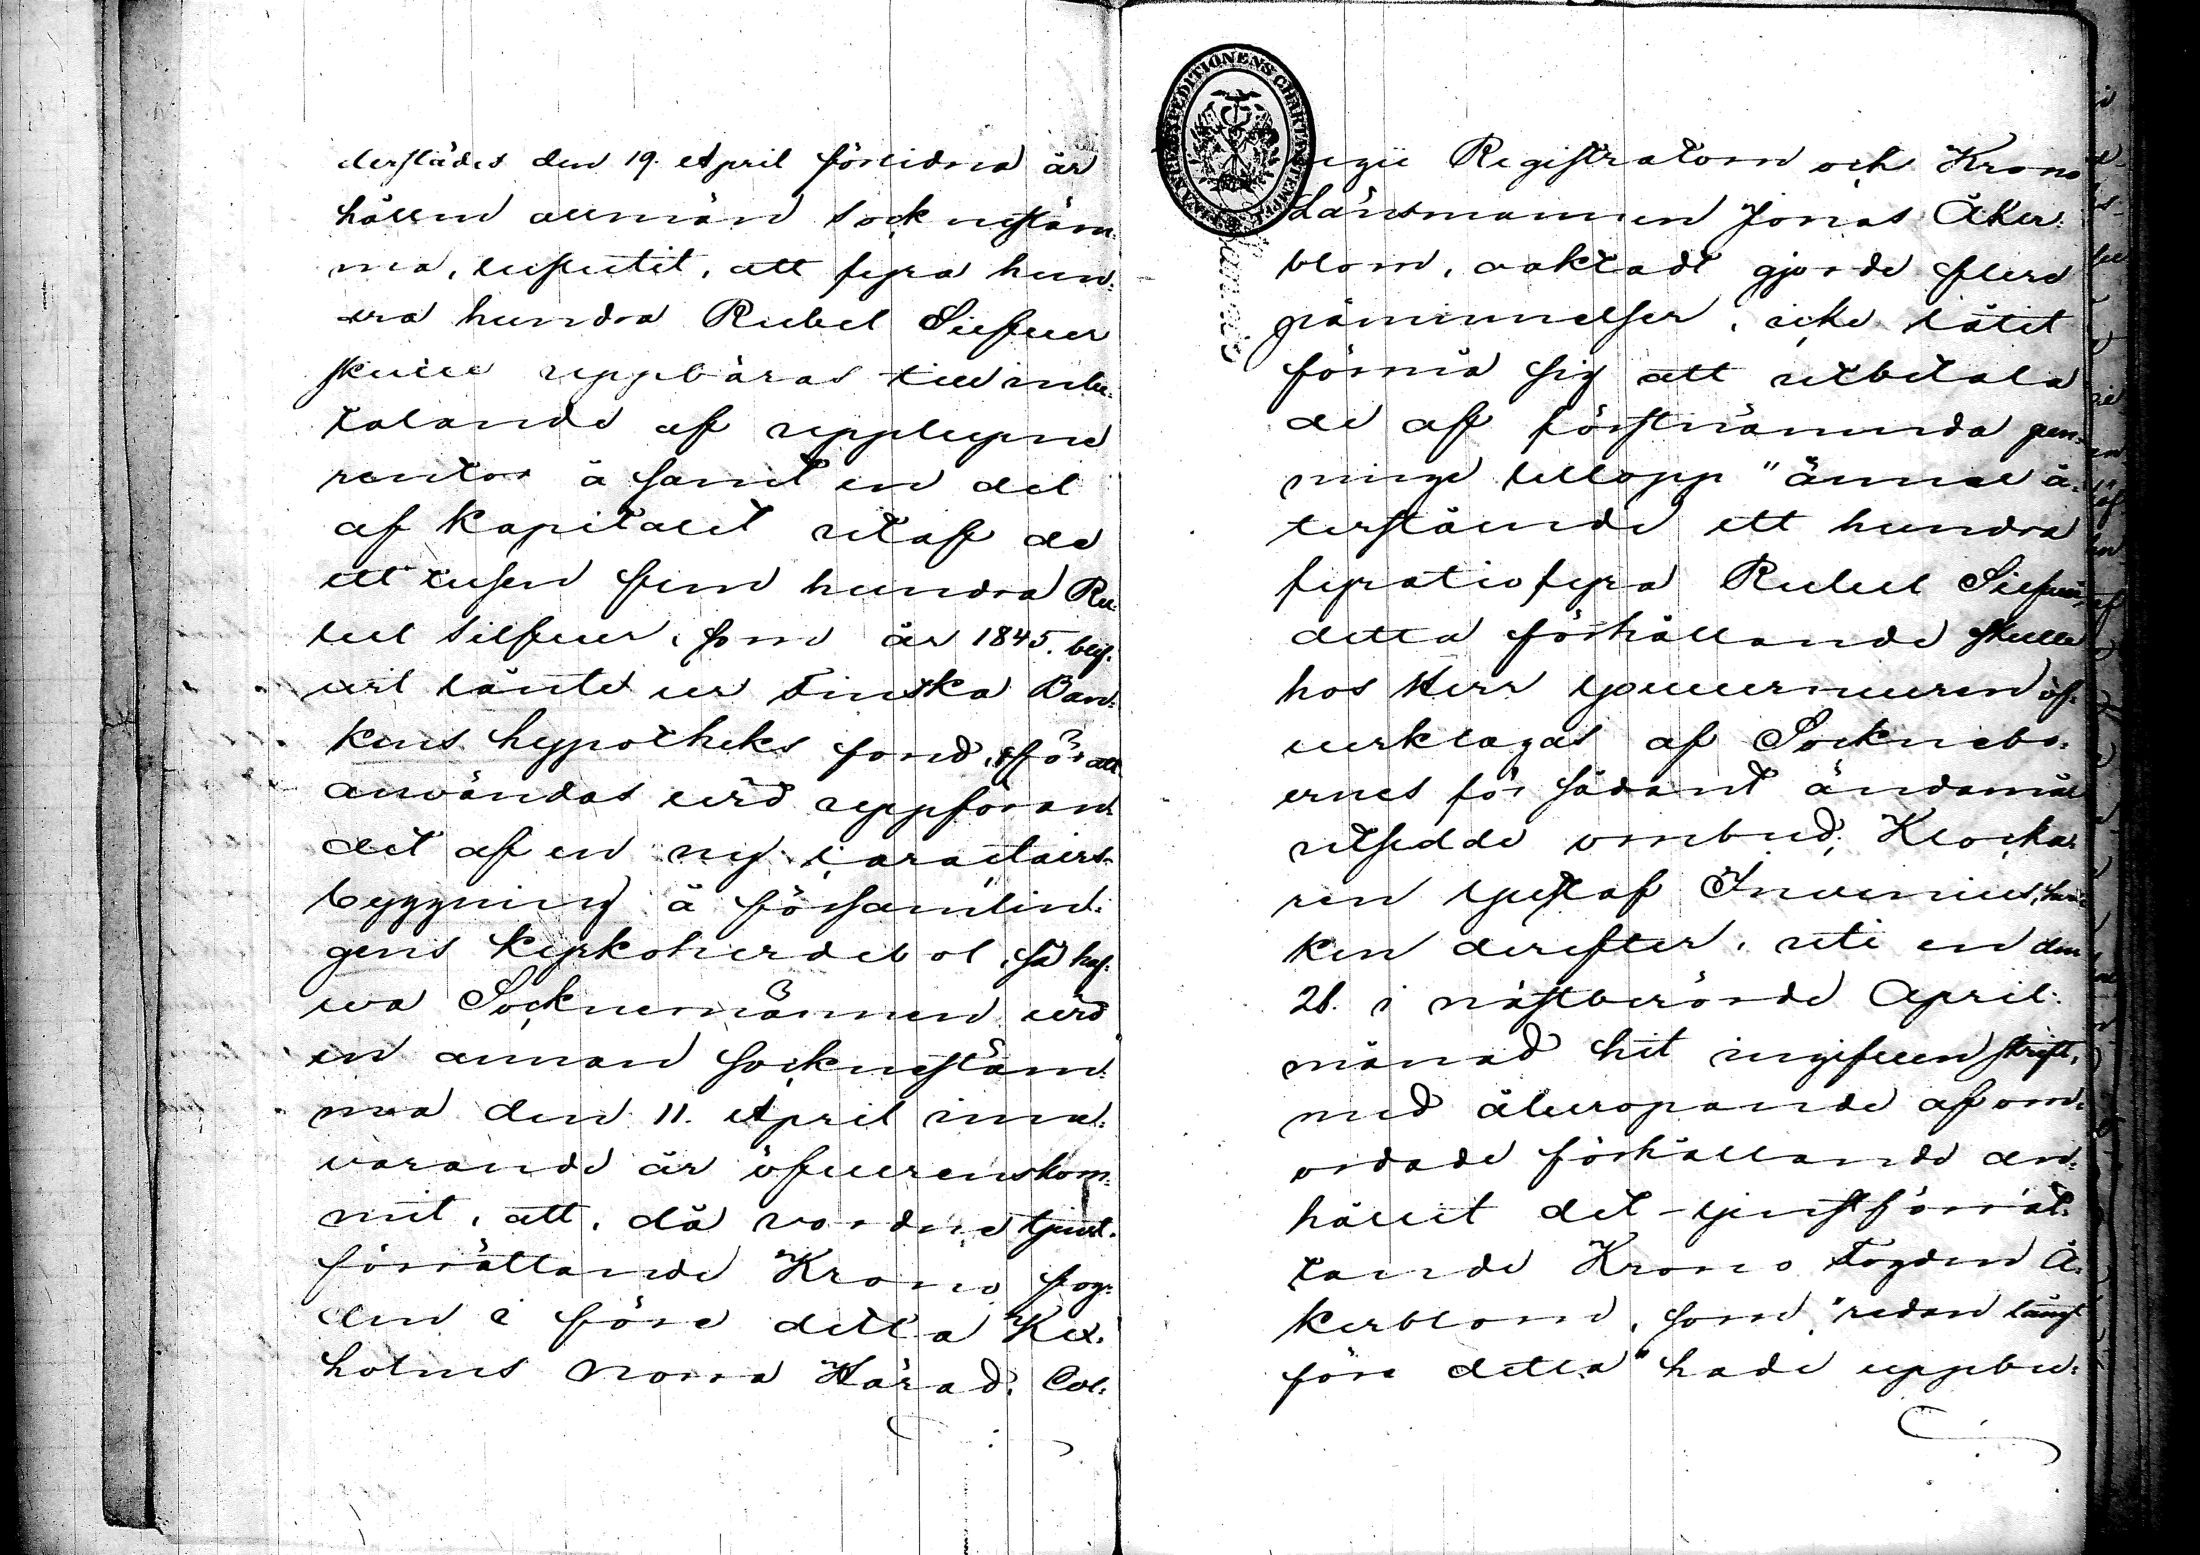 derstädes den 19. April förlidna år
hållen allmän socknestäm:
ma, beslutit, att fyra hun:
dra hundra Rubel Silfver
skulle uppbäras till inbe:
talande af upplupne
räntor å samt en del
af kapitalet utaf de
ett tusen fem hundra Ru:
bel Silfver, som år 1845. blif:
vit lånte ur Finska Ban:
kens hypotheks fond, för att
användas vid uppföran:
det af en ny karaktairs-
byggning å församlin:
gens kyrkoherdebol, så haf:
va Socknemännen vid
en annan socknestäm:
ma den 11. April inne:
varande år öfverenskom:
mit, att, då vordne tjenst:
förrättande Krono fog:
den i före detta Kex:
holms Norra Härad, Col:
legii Registratorn och Krono
Länsmannen Jonas Åker:
blom, oaktadt gjorde flere
påminnelser, icke låtit
förmå sig att utbetala
de af förstnämnda pen:
ninge belopp "ännu å:
terstående ett hundra
fyratiofyra Rubel Silfver,
detta förhållande skulle
hos Herr Gouverneuren öf:
verklagas af Socknebo:
ernes för sådant ändamål
utsedde ombud, Klocka:
ren Gustaf Invenius, hvil:
ken derefter, uti en den
26. i nästberörde April
månad hit ingifven skrift,
med åberopande af om:
ordade förhållande an:
hållit det tjenstförrät:
tande Krono Fogden Å:
kerblom, som "redan långt
före detta" hade uppbu: